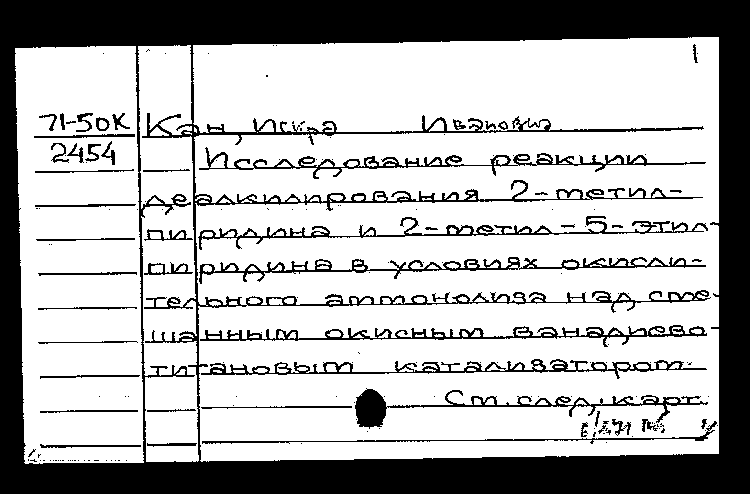 1
71-50К Кан, Искра Ивановна
2454 Исследование реакции
деалкилирования 2-метил-
пиридина и 2-метил-5-этил-
пиридина в условиях окисли-
тельного аммонолиза над сме-
шанным окисным ванадиево-
титановым катализатором.
См. след. карт.